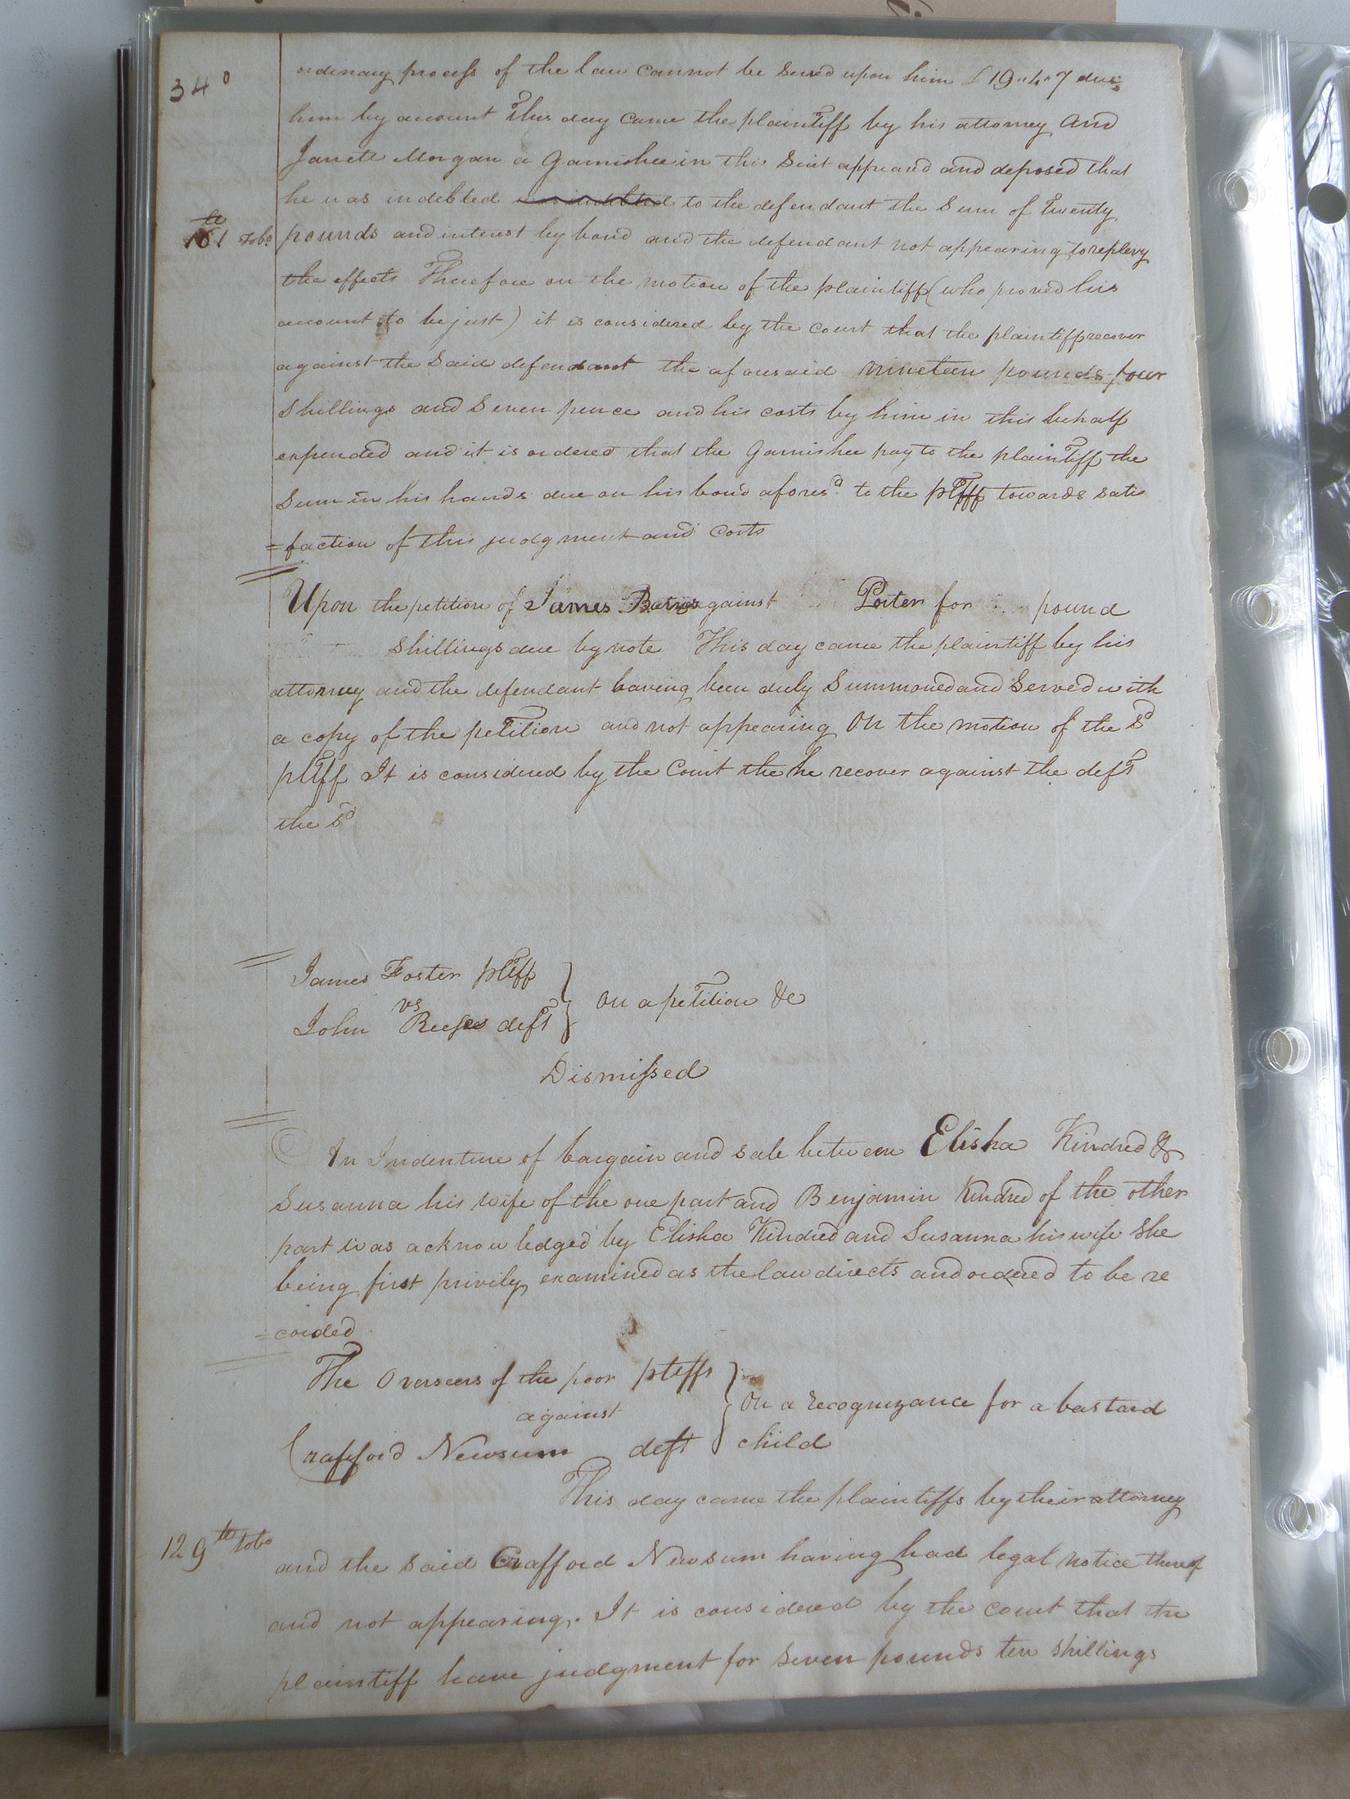 340
ordinary process of the law cannot be served upon him £19.4.7 due
him by account This day came the plaintiff by his attorney and
Jarrett Morgan a Garnishee in this Suit appeared and deposed that
he was indebted to the defendant the Sum of twenty
161 Tobo pounds and interest by bond and the defendant not appearing to replevy
the effects Therefore on the motion of the plaintiff (who proved his
account to be just) it is considered by the court that the plaintiff recover
against the said defendant the aforesaid nineteen pounds four
shillings and seven pence and his costs by him in this behalf
expended and it is ordered that the Garnishee pay to the plaintiff the
Sum in his hands due on his bond aforesd. to the pltff towards satis
=faction of this judgment and costs
Upon the petition of James against Porter for pound
shillings due by note This day came the plaintiff by his
attorney and the defendant having been duly Summoned and Served with
a copy of the petition and not appearing On the motion of the sd
pltff It is considered by the Court the he recover against the deft
the sd
James Foster pltff
vs
John deft
On a petition &c
Dismissed
An Indenture of bargain and sale between Elisha Kindred &
Susanna his wife of the one part and Benjamin Kindred of the other
part was acknowledged by Elisha Kindred and Susanna his wife She
being first privily examined as the law directs and ordered to be re
=corded
The Overseers of the poor pltffs
against
Crafford Newsum deft
On a recognizance for a bastard
child
This day came the plaintiffs by their attorney
129th tobo and the said Crafford Newsum having had legal notice thereof
and not appearing. It is considered by the court that the
plaintiff have judgment for seven pounds ten shillings